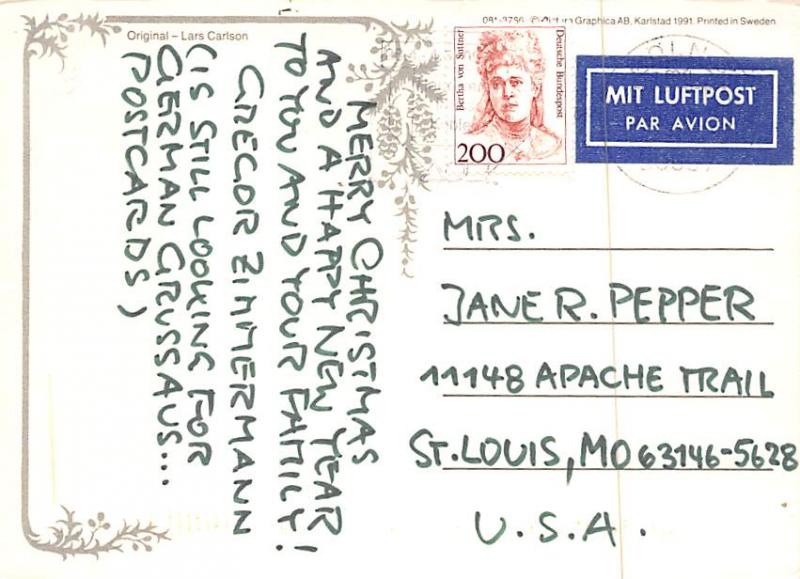 Original – Lars Carlson
Graphica AB, Karlstad 1991 Printed in Sweden
MERRY CHRISTMAS
AND A HAPPY NEW YEAR
TO YOU AND YOUR FAMILY!
GREGOR ZIMMERMANN
(IS STILL LOOKING FOR
GERMAN GRUSSAUS...
POSTCARDS)
Bertha von Suttner
Deutsche Bundespost
200
KÖLN
MIT LUFTPOST
PAR AVION
MRS.
JANE R. PEPPER
11148 APACHE TRAIL
ST. LOUIS, MO 63146-5628
U.S.A.